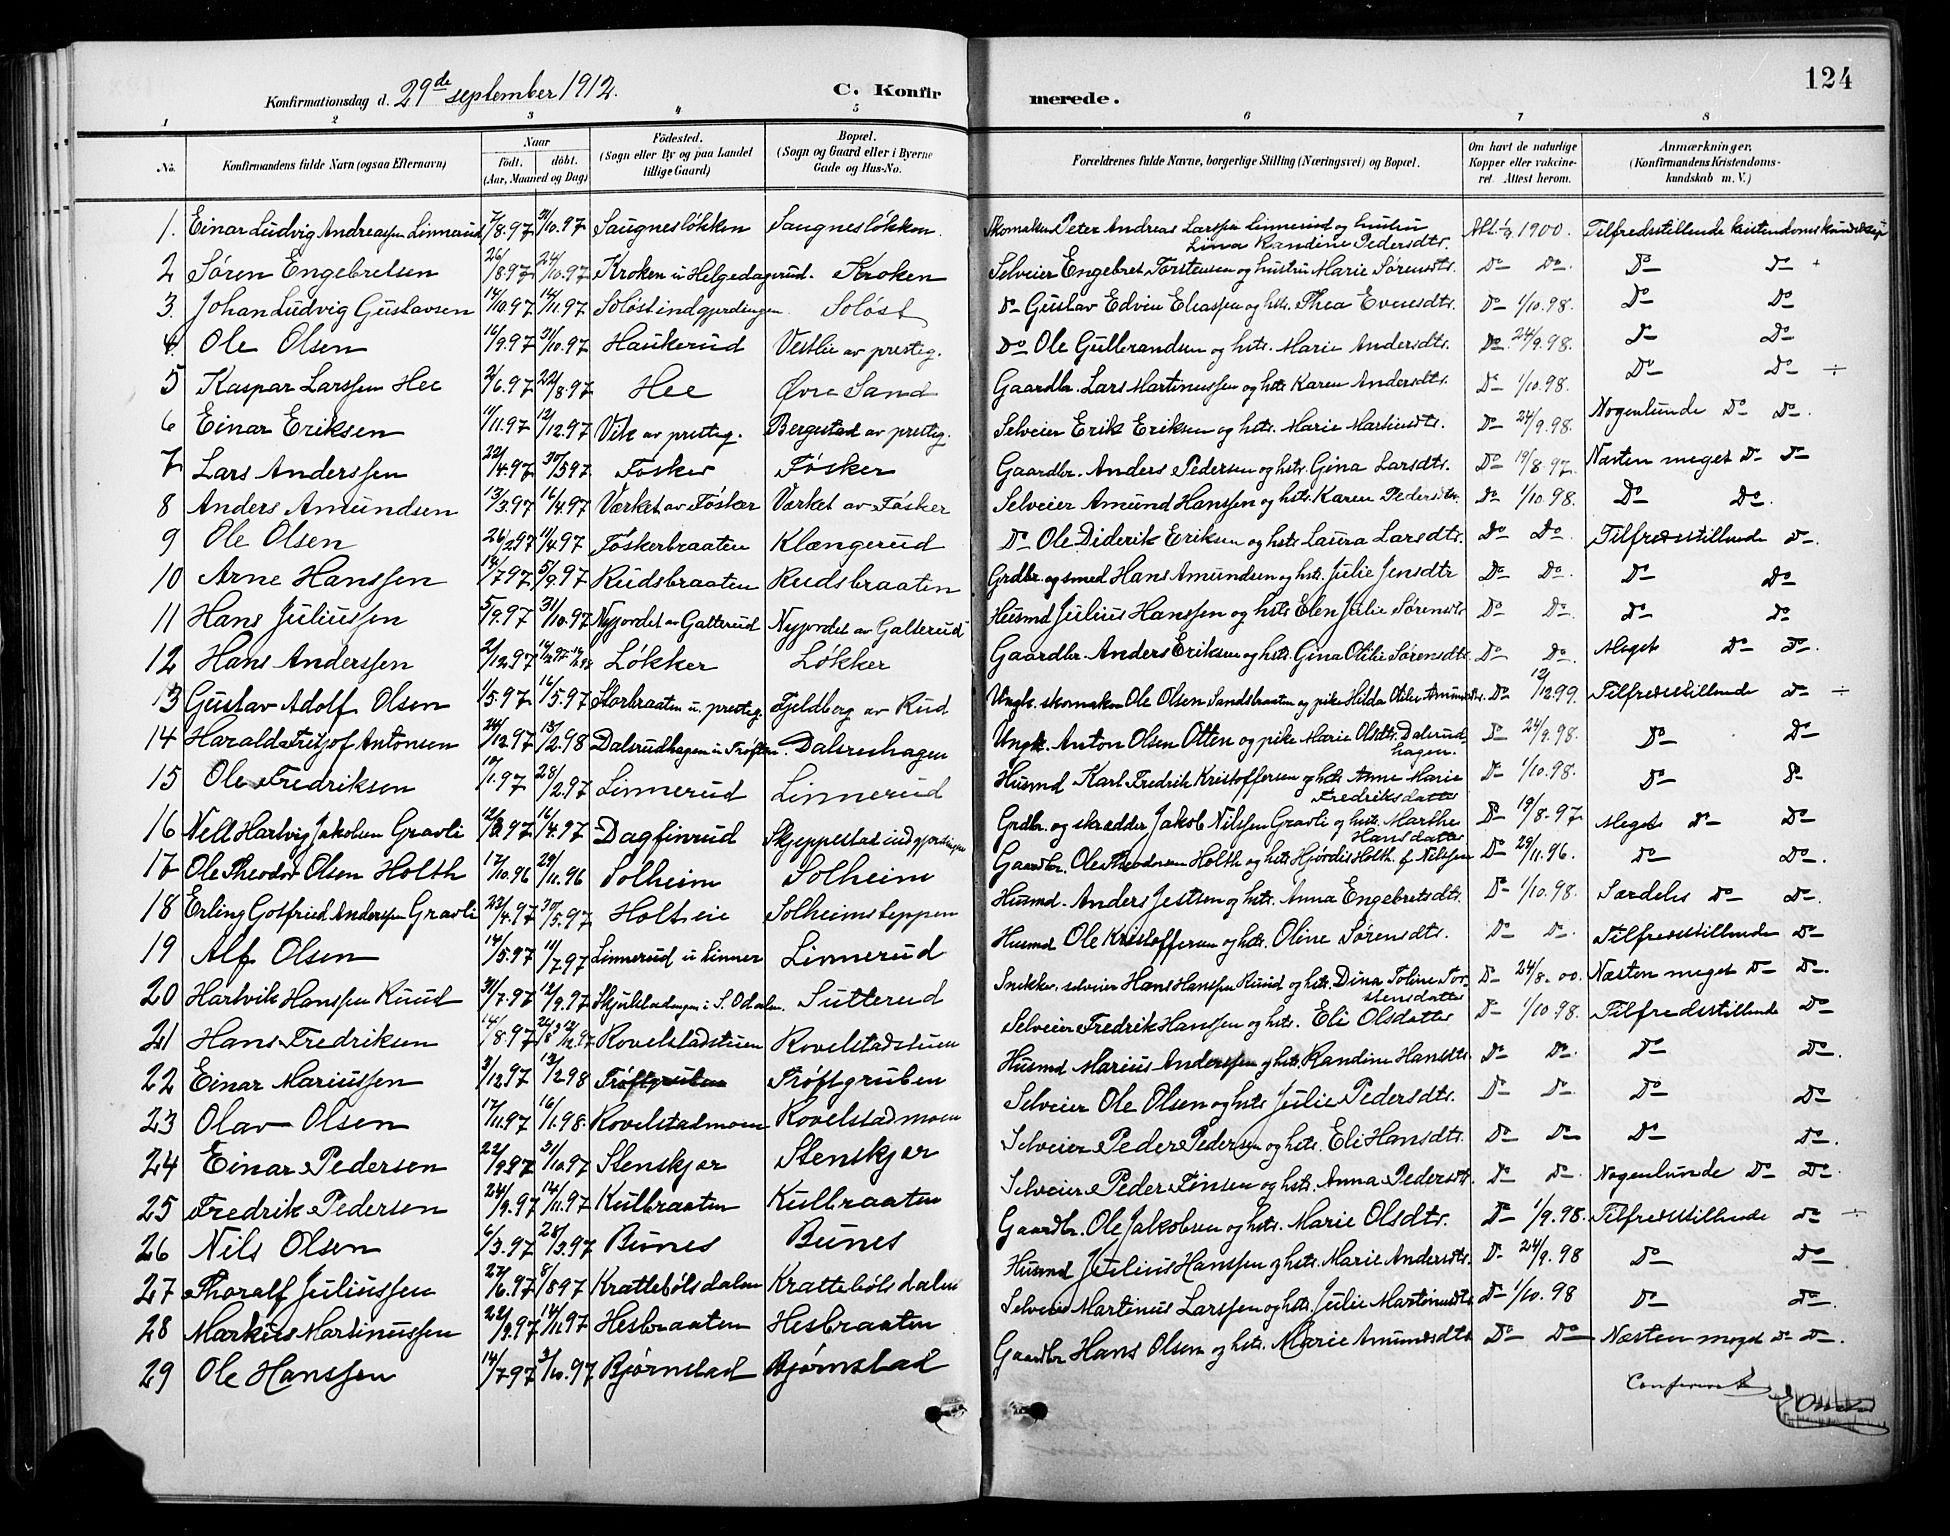 124
Konfirmationsdag d. 29de september 1912.
C. Konfirmerede.
1 2 3 4 5 6 7 8
No. Konfirmandens fulde Navn (ogsaa Efternavn) Naar født. døbt. (Aar, Maaned og Dag) Fødested. (Sogn eller By og paa Landet tillige Gaard) Bopæl. (Sogn og Gaard eller i Byerne Gade og Hus-No. Forældrenes fulde Navne, borgerlige Stilling (Næringsvei) og Bopæl. Om havt de naturlige Kopper eller vakcineret. Attest herom. Anmærkninger, (Konfirmandens Kristendomskundskab m. V.)
1. Einar Ludvig Andreassen Linnerud 7/8.97 31/10.97 Saugnesløkken Saugnesløkken. Skomaker Peter Andreas Larssen Linnerud og hustru Lina Randine Pedersdtr. 1900. Tilfredsstillende kristendomskundskap
2 Søren Engebretsen 26/8 97 24/10.97 Kroken u Helgedagsrud. Kroken Selveier Engebret Torstensen og hustru Marie Sørensdtr. Do Do. Do Do
3. Johan Ludvig Gustavsen 14/10.97 14/11.97 Soløst indgjerdingen. Soløst Do Gustav Edvin Eliassen og hstr. Thea Evensdtr. Do 1/10.98. Do Do
4. Ole Olsen 16/9.97 31/10.97 Haukerud Vestlie av presteg. Do Ole Gulbrandsen og hstr. Marie Andersdtr. Do 24/9.98. Do Do
5 Kaspar Larssen Hee 2/6.97 22/8.97 Hee Øvre Sand Gaardbr. Lars Martinussen og hstr Karen Andersdtr. Do 1/10.98. Do Do ÷
6 Einar Eriksen 11/11.97 12/12.97 Vik av presteg. Bergestad av presteg. Selveier Erik Eriksen og hstr. Marie Martinsdtr. Do 24/9.98. Nogenlunde Do Do.
7 Lars Anderssen 22/4.97 30/5 97 Fosker Føsker Gaardbr. Anders Pedersen og hstr. Gina Larsdtr. Do 19/8 97. Næsten meget Do Do
8 Anders Amundsen 13/3.97 16/4.97 Værket av Føsker Værket av Føsker Selveier Amund Hanssen og hstr. Karen Pedersdtr. Do 1/10.98. Do Do.
9 Ole Olsen 26/2.97 11/4.97 Foskerbraaten Klængerud Do Ole Diderik Eriksen og hstr Laura Larsdtr. Do Do. Tilfredsstillende Do.
10 Arne Hanssen 14/7 97 5/9.97 Rudsbraaten Rudsbraaten Grdbr. og smed Hans Amundsen og hstr. Julie Jensdtr Do Do. Do Do
11 Hans Juliussen 5/9.97 31/10.97 Nyjordet av Galterud Nyjordet av Galterud Husmd Julius Hanssen og hstr Elen Julie Sørensdtr Do Do. Do Do
12 Hans Anderssen 2/12.97 Løkker Løkker Gaardbr. Anders Eriksen og hstr. Gina Otilie Sørensdtr. Do Do. Meget Do Do.
13 Gustav Adolf Olsen 1/5.97 16/5.97 Storbraaten u. presteg. Fjeldberg av Rud Ungk. skomaker Ole Olsen Sandsbraaten og pike Hilda Otilie Amundsdtr. Do 12/12 99. Tilfredsstillende Do ÷
14 Harald Fritjof Antonsen 24/12.97 13/2.98 Dalsrudhagen u Trøften. Dalsrudhagen Ungk. Anton Olsen Otten og pike Marie Olsdtr. Dalsrudhagen. Do 24/9.98. Do Do
15 Ole Fredriksen 10/1.97 28/2.97 Linnerud Linnerud Husmd Karl Fredrik Kristoffersen og hstr Anne Marie Fredriksdatter Do 1/10.98. Do Do
16 Nell Hartvig Jakobsen Gravli 16/4.97 Dagfinrud Skjeppestad indgjerdingen Grdbr. og skrædder Jakob Nilssen Gravli og hstr. Marthe Hansdatter Do 19/8-97 Meget Do Do
17 Ole Theodor Olsen Holth 17/10.96 29/11.96 Solheim Solheim Gaardbr. Ole Theodorsen Holth og hstr Hjørdis Holth f. Nilssen Do 29/11.96. Do Do.
18 Erling Gotfried Anderssen Gravli 22/4.97 30/5.97 Holt eie Solheimsteppen Husmd. Anders Jestsen og hstr. Anna Engebretsdtr. Do 1/10.98. Særdeles Do Do.
19 Alf Olsen 14/5.97 11/7 97 Linnerud u Linner Linnerud Husmd Ole Kristoffersen og hstr. Oline Sørensdtr. Do Do. Tilfredsstillende Do
20 Hartvik Hanssen Ruud 31/7.97 12/9.97 Skjulstadengen i S. Odalen. Sutterud Snikker, selveier Hans Hanssen Ruud og hstr. Dina Toline Torstensdatter Do 24/8-00. Næsten meget Do Do.
21 Hans Fredriksen 14/8.97 Rovelstadstuen Rovelstadstuen Selveier Fredrik Hanssen og hstr. Eli Olsdatter Do 1/10.98. Tilfredsstillende Do
22 Einar Mariussen 3/12.97 13/2 98 Trøftgruben Trøftgruben Husmd Marius Anderssen og hstr. Randine Hansdtr. Do Do. Do Do.
23 Olav Olsen 17/11.97 16/1.98. Rovelstadmoen Rovelstadmoen Selveier Ole Olsen og hstr. Julie Pedersdtr. Do Do. Do Do
24 Einar Pedersen 22/9 97 31/10.97 Stenskjær Stenskjær Selveier Peder Pedersen og hstr. Eli Hansdtr. Do Do Do Do.
25 Fredrik Pedersen 24/9.97 14/11.97 Kulbraaten Kulbraaten Selveier Peder Finsen og hstr. Anna Pedersdtr. Do Do. Nogenlunde Do Do.
26 Nils Olsen 6/3.97 28/3.97 Bunes Bunes Gaardbr. Ole Jakobsen og hstr. Marie Olsdtr. Do 1/9.98. Tilfredsstillende Do ÷
27 Thoralf Juliussen 27/6.97 8/8 97 Krattebølsdalen Krattebølsdalen Husmd Julius Hanssen og hstr. Marie Andersdtr. Do 24/9.98 Do Do
28 Markus Martinussen 22/9.97 14/11.97 Hesbraaten Hesbraaten Selveier Martinus Larssen og hstr. Julie Martinusdtr. Do 1/10.98 Do Do.
29 Ole Hanssen 14/7 97 3/10.97 Bjørnstad Bjørnstad Gaardbr Hans Olsen og hstr. Marie Amundsdtr Do Do Næsten meget Do Do.